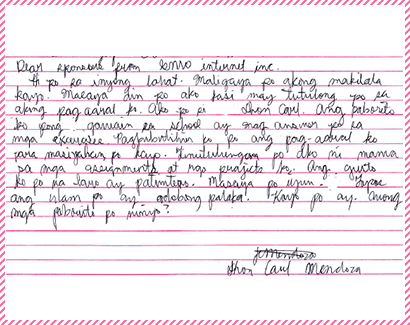 Dear sponsors from GMO internet inc.
Hi po sa inyong lahat. Maligaya po akong makilala
kayo. Masaya din po ako kasi may tutulong po sa
aking pag-aaral ko. Ako po si Jhon Carl. Ang paborito
ko pong gawain sa school ay mag answer po sa
mga exercise. Pagbubutihin ko po ang pag-aaral ko
para masiyahan po kayo. Tinutulungan po ako ni mama
sa mga assignments at mga projects ko. Ang gusto
ko po sa laro ay patintero. Masaya po
ang ulam po ay adobong palaka. Kayo po ay. Anong
mga paborito po ninyo?
Jhon Carl Mendoza